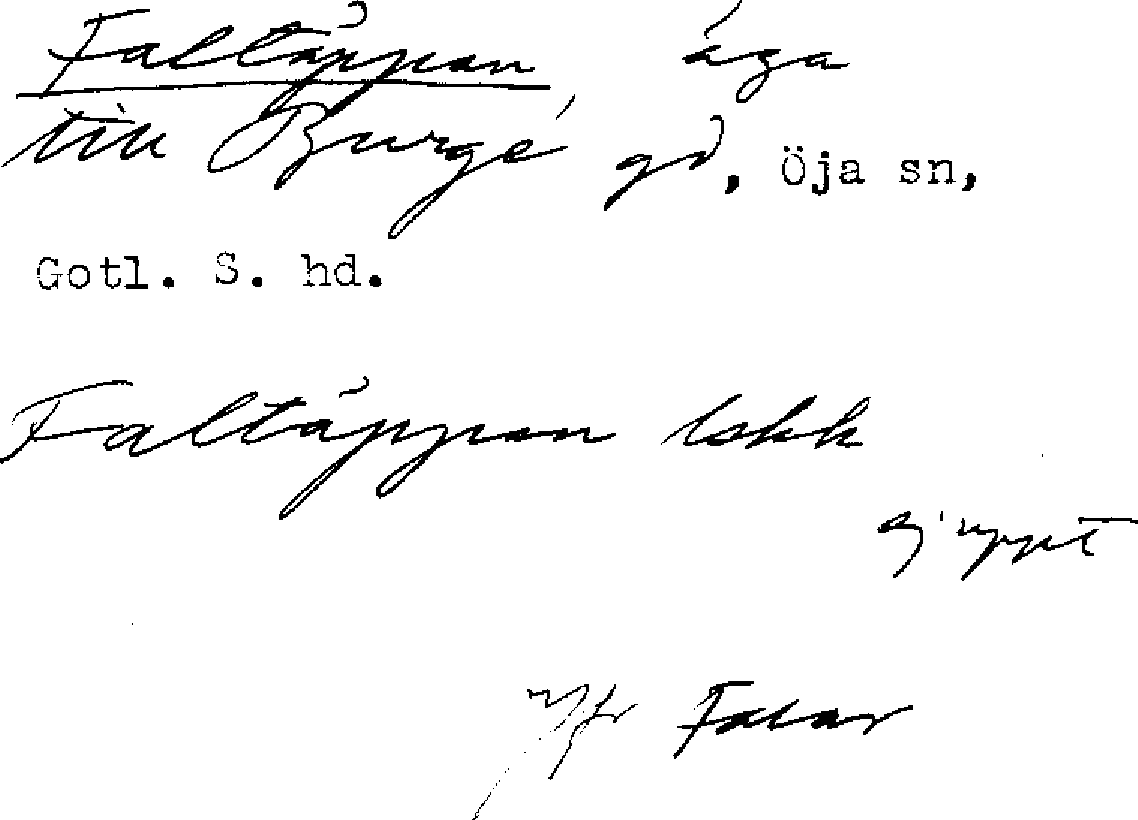 Faltäppan, äga
till Burge gd, Öja sn,
Gotl. S. hd.
Faltäppan lskk
ej uppt
Jfr Falar